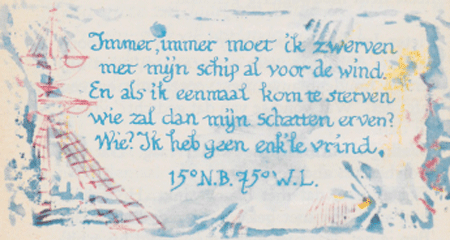 Immer, immer moet ik zwerven
met mijn schip al voor de wind.
En als ik eenmaal kom te sterven
wie zal dan mijn schatten erven?
Wie? Ik heb geen enk'le vrind.
15° N.B. 75° W.L.